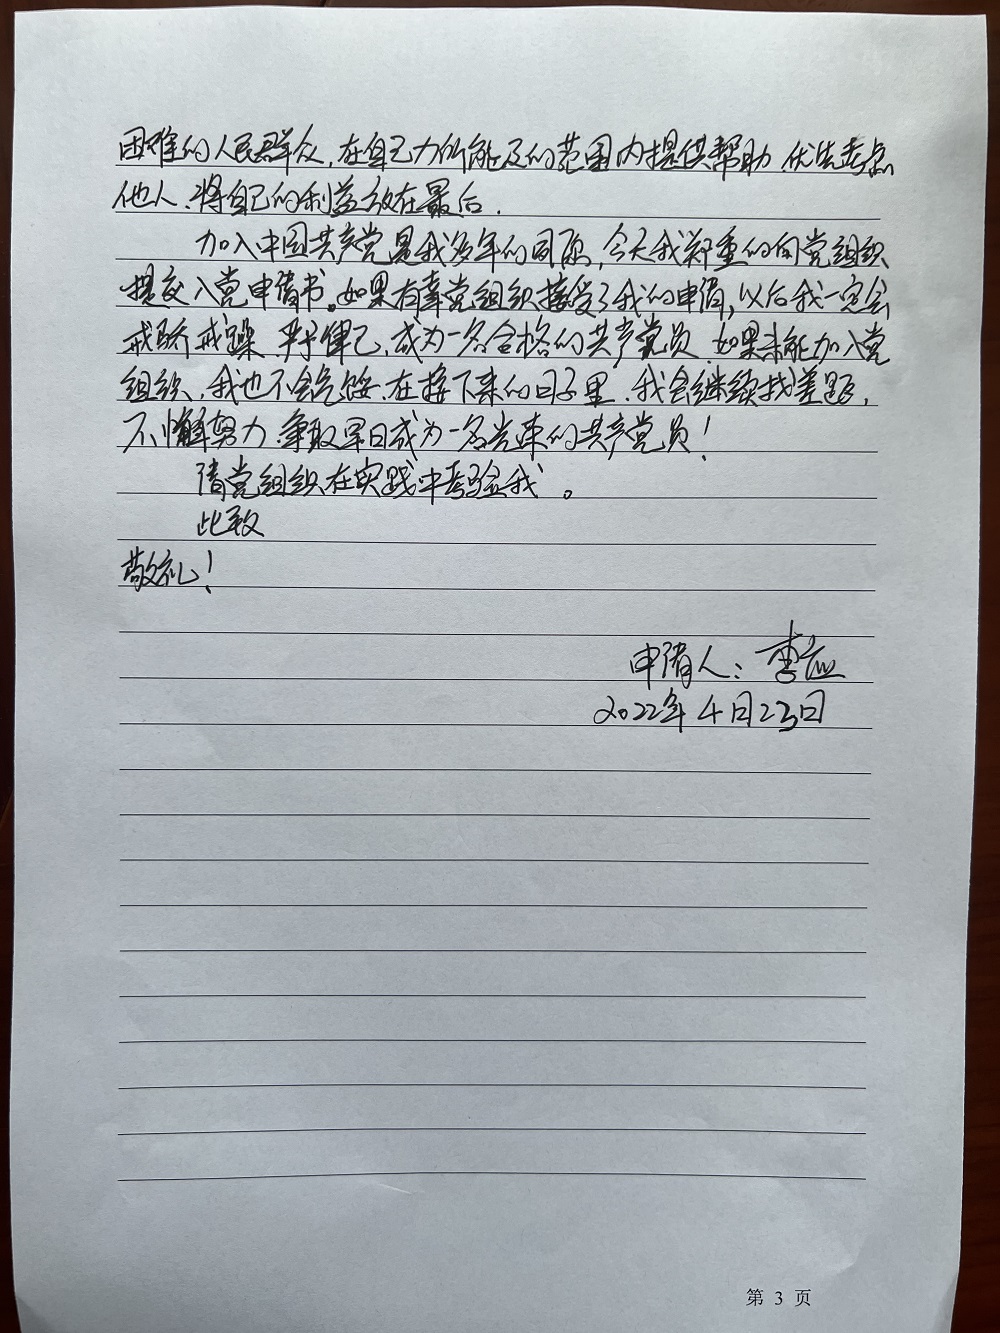 困难的人民群众,在自己力所能及的范围内提供帮助,优先考虑
他人、将自己的利益放在最后.
加入中国共产党是我多年的夙愿,今天我郑重的向党组织
提交入党申请书。如果有幸党组织接受了我的申请,以后我一定会
戒骄戒躁、严于律己,成为一名合格的共产党员.如果未能加入党
组织、我也不会气馁.在接下来的日子里、我会继续找差距,
不懈努力、争取早日成为一名光荣的共产党员!
请党组织在实践中考验我。
此致
敬礼!
申请人:李应
2022年4月23日
第 3 页